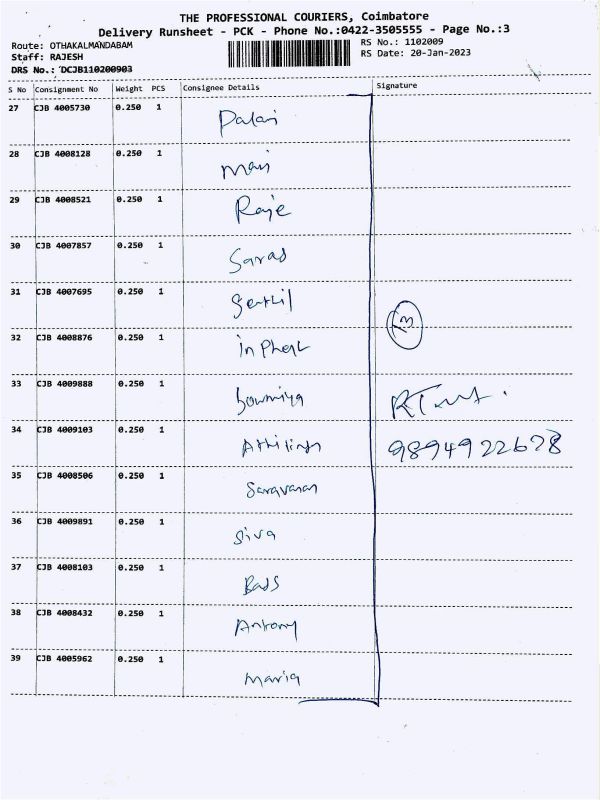 THE PROFESSIONAL COURIERS, Coimbatore
Delivery Runsheet - PCK - Phone No.:0422-3505555 - Page No.:3
Route: OTHAKALMANDABAM
RS No.: 1102009
Staff: RAJESH
RS Date: 20-Jan-2023
DRS No.: DCJB110200903
S No Consignment No Weight PCS Consignee Details Signature
27 CJB 4005730 0.250 1 Palani
28 CJB 4008128 0.250 1 Mani
29 CJB 4008521 0.250 1 Raje
30 CJB 4007857 0.250 1 Saras
31 CJB 4007695 0.250 1 Senthil
32 CJB 4008876 0.250 1
33 CJB 4009888 0.250 1 Sowmiya
34 CJB 4009103 0.250 1 9894922678
35 CJB 4008506 0.250 1 Saravanan
36 CJB 4009891 0.250 1 Siva
37 CJB 4008103 0.250 1
38 CJB 4008432 0.250 1 Antony
39 CJB 4005962 0.250 1 Maria